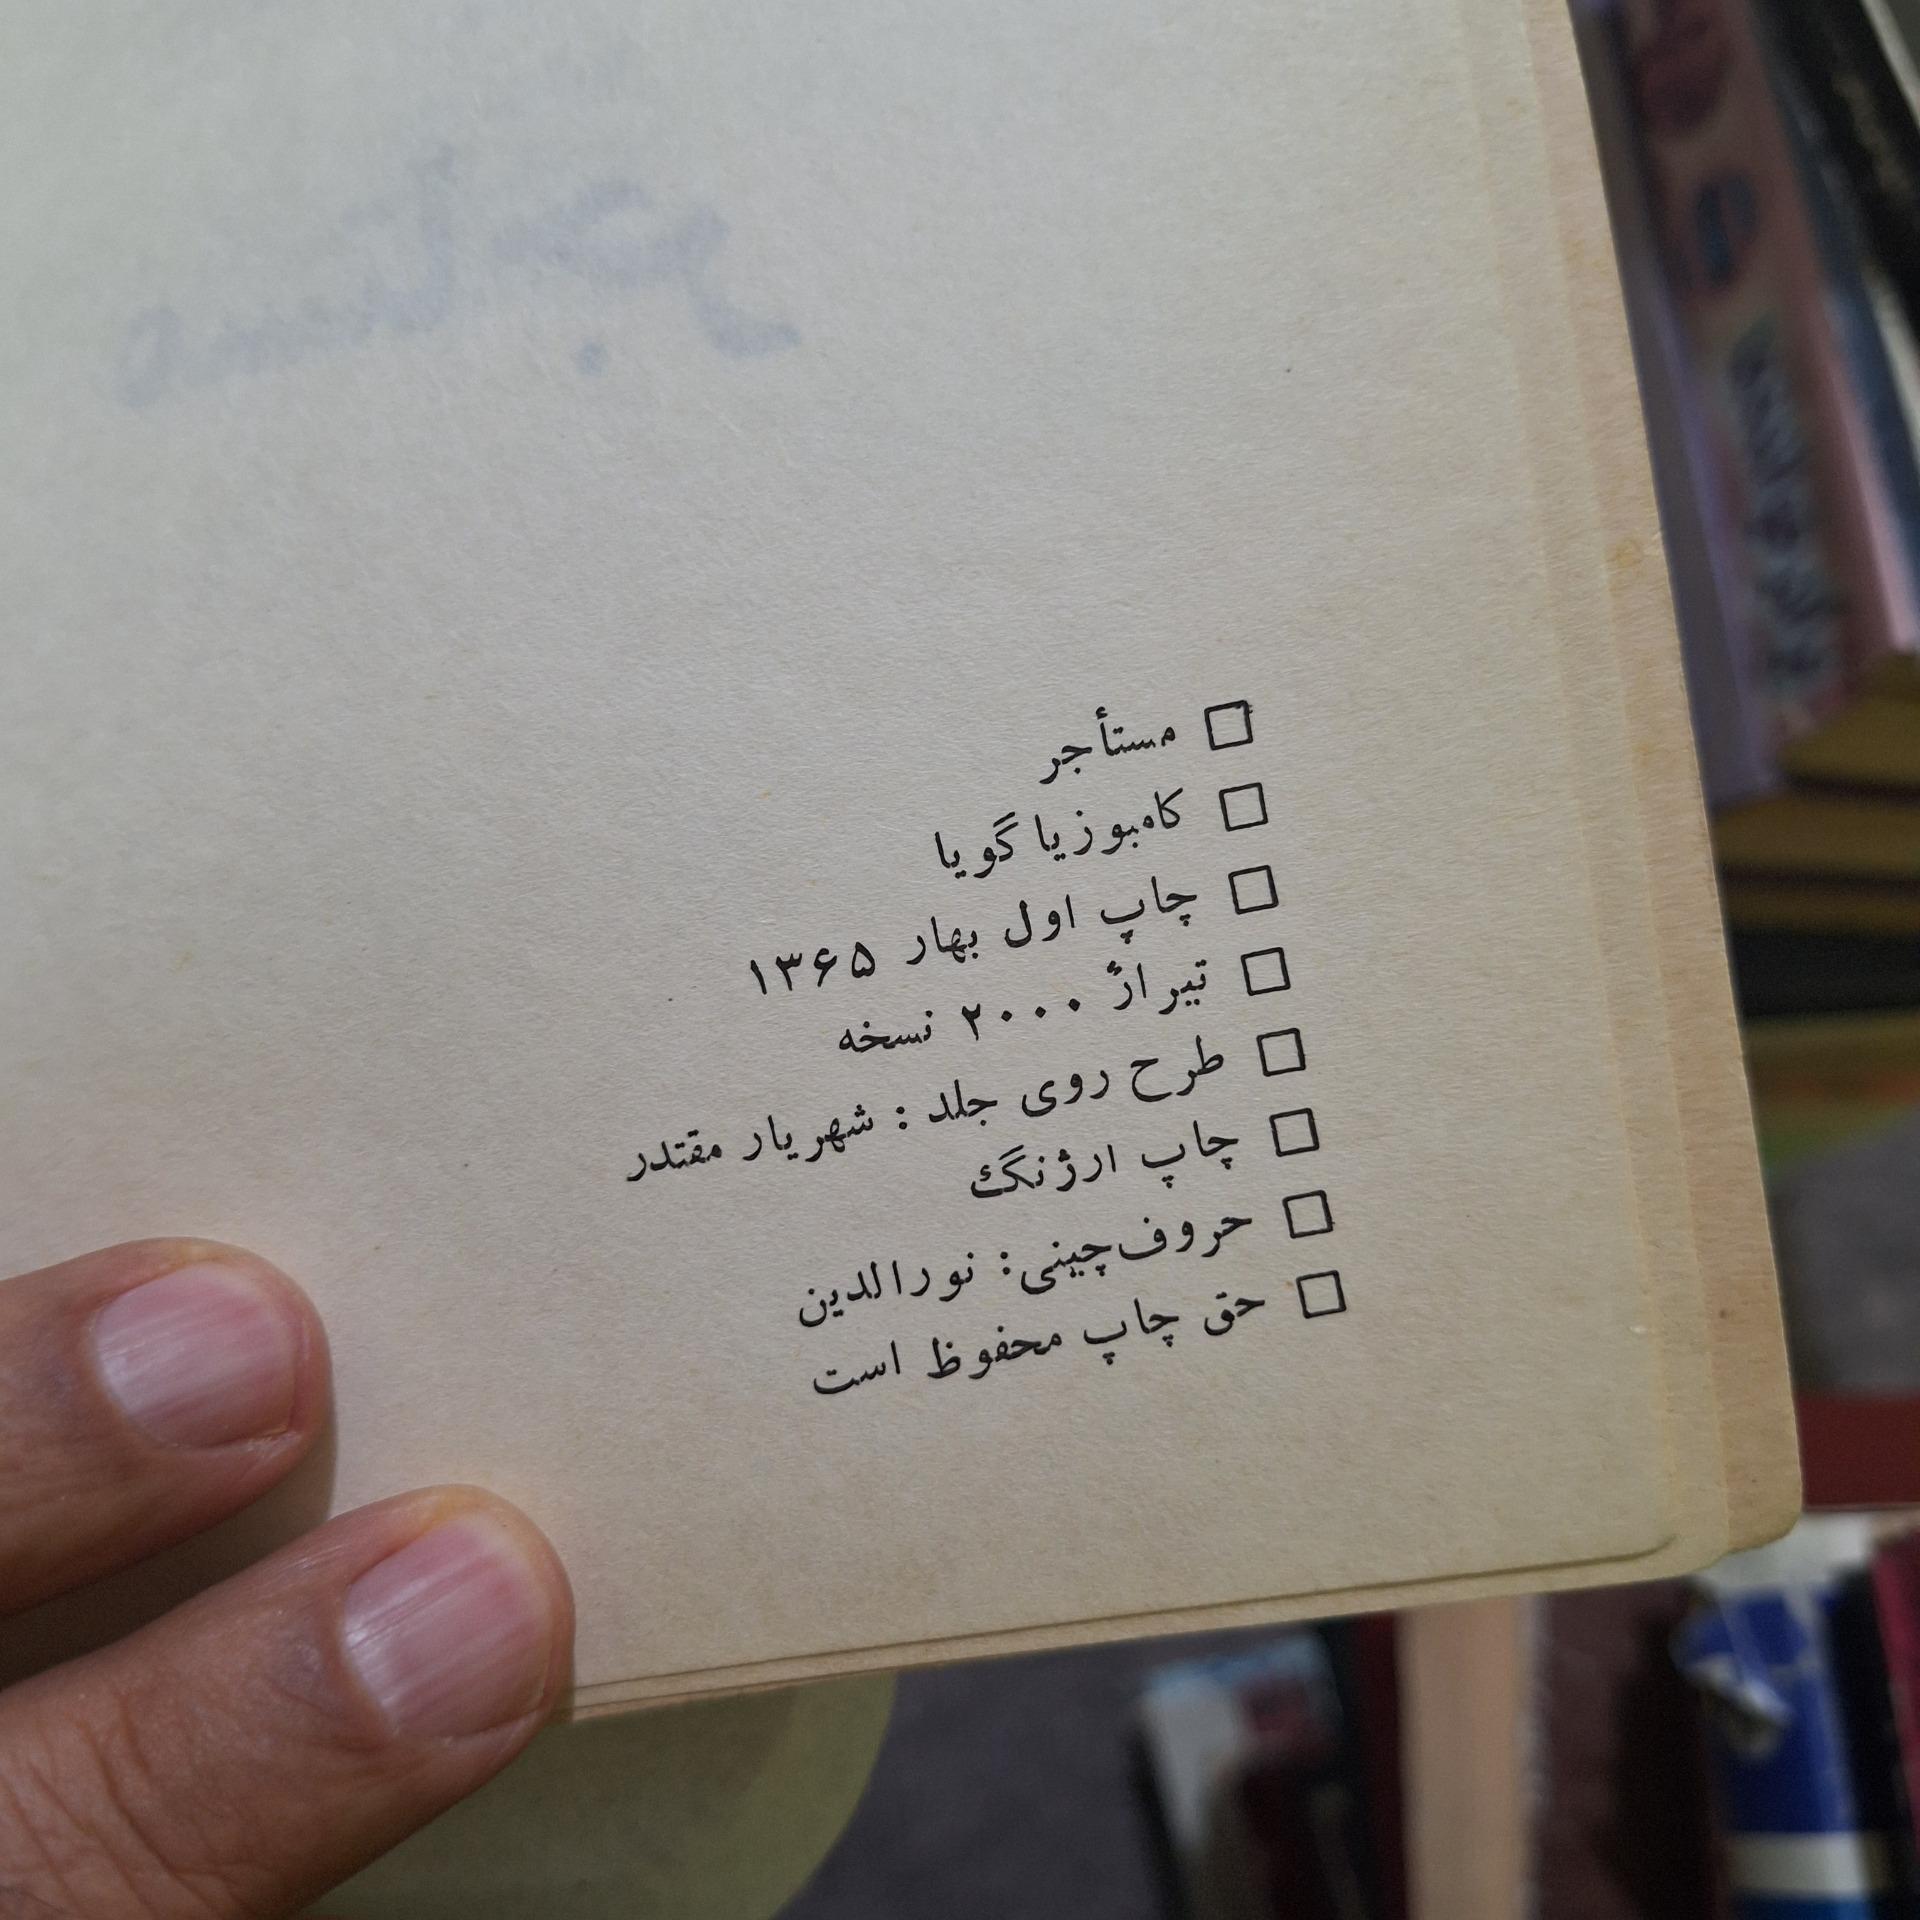 □ مستأجر
□ کامبوزیا گویا
□ چاپ اول بهار ۱۳۶۵
□ تیراژ ۲۰۰۰ نسخه
□ طرح روی جلد : شهریار مقتدر
□ چاپ ارژنگ
□ حروف‌چینی: نورالدین
□ حق چاپ محفوظ است